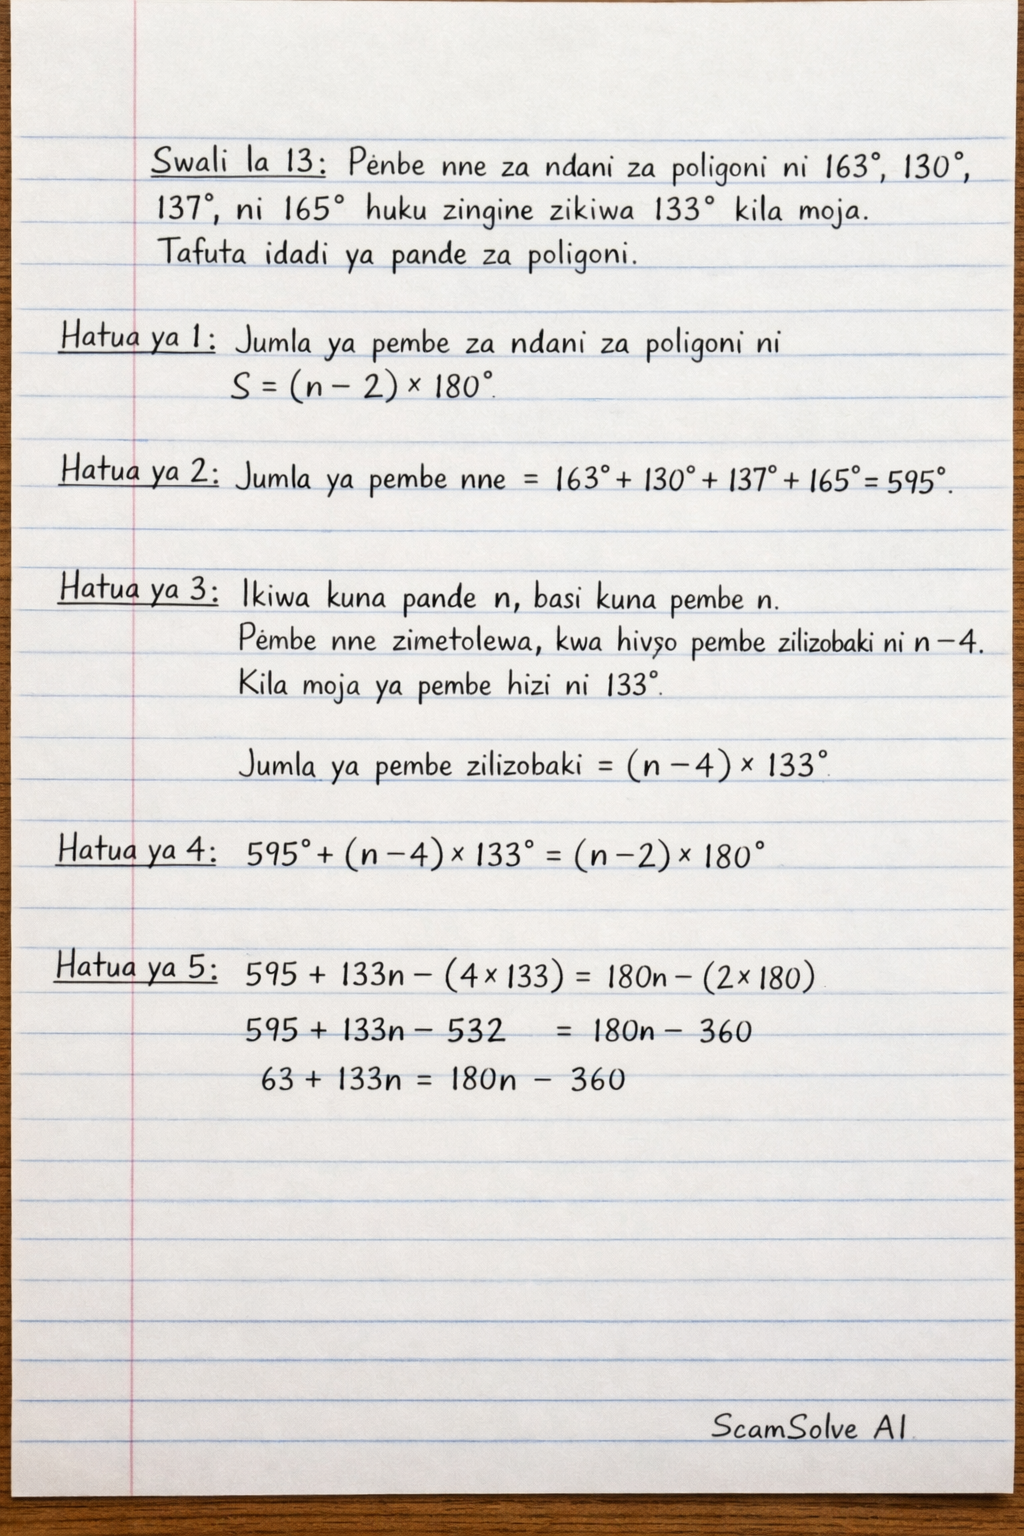 Swali la 13: Pėnbe nne za ndani za poligoni ni 163°, 130°,
137°, ni 165° huku zingine zikiwa 133° kila moja.
Tafuta idadi ya pande za poligoni.
Hatua ya 1: Jumla ya pembe za ndani za poligoni ni
S = (n - 2) × 180°.
Hatua ya 2: Jumla ya pembe nne = 163° + 130° + 137° + 165° = 595°.
Hatua ya 3: Ikiwa kuna pande n, basi kuna pembe n.
Pėmbe nne zimetolewa, kwa pembe zilizobaki ni n - 4.
Kila moja ya pembe hizi ni 133°.
Jumla ya pembe zilizobaki = (n - 4) × 133°
Hatua ya 4: 595° + (n - 4) × 133° = (n - 2) × 180°
Hatua ya 5: 595 + 133n - (4 × 133) = 180n - (2 × 180)
595 + 133n - 532 = 180n - 360
63 + 133n = 180n - 360
ScamSolve AI